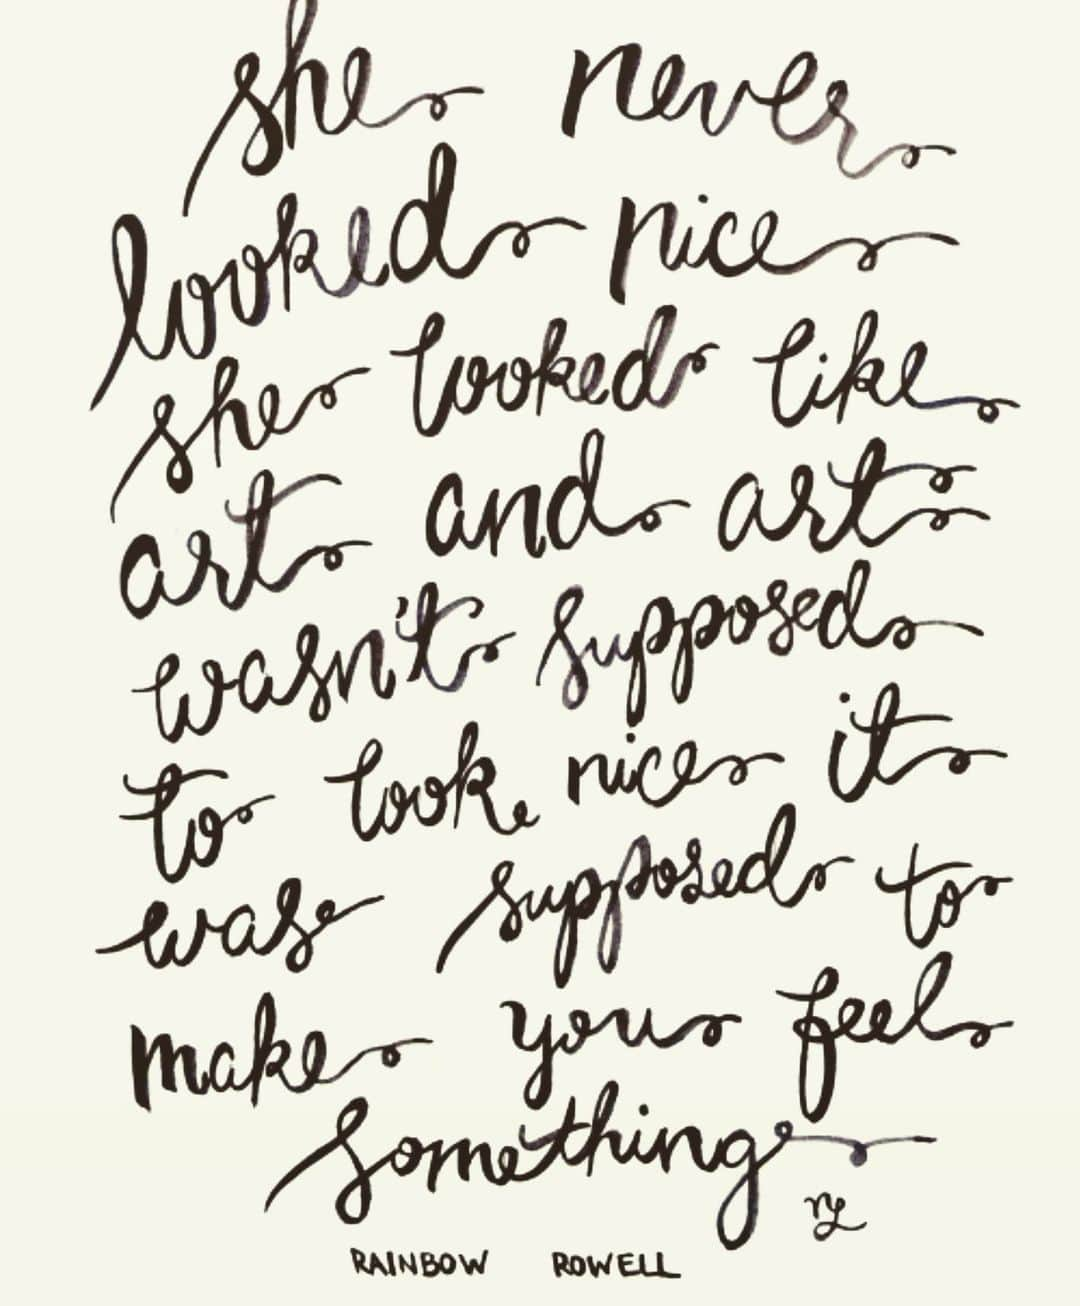 she never
looked nice
she looked like
art and art
wasn't supposed
to look nice it
was supposed to
make you feel
something
RAINBOW ROWELL